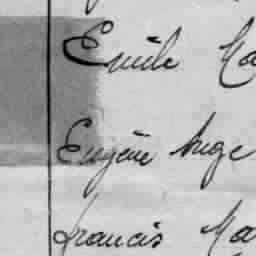 Emile Ma
Eugène Ange
francis Ma